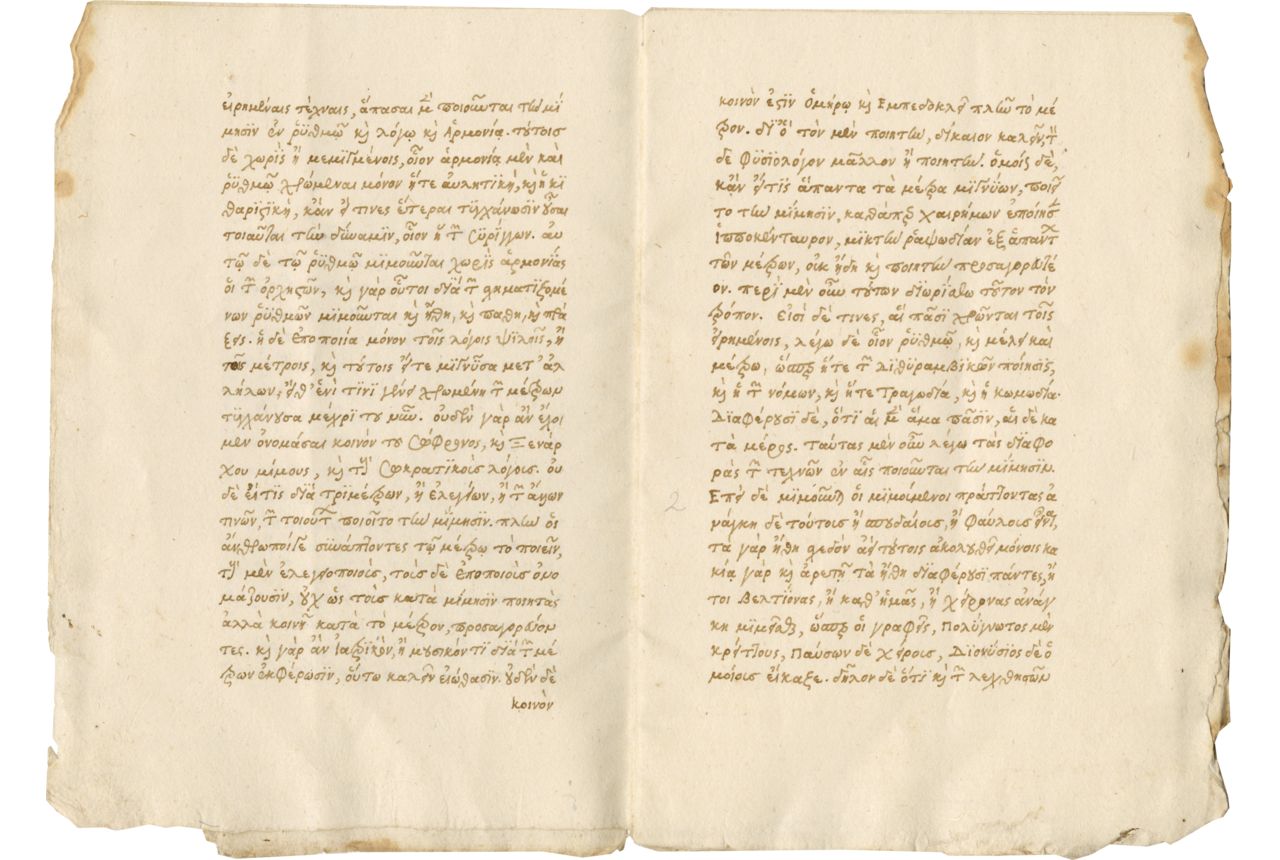 εἰρημέναις τέχναις, ἅπασαι μ̀ ποιοῦνται τὴν μί
μησϊν ἐν ῥϋθμῷ κὶ λόγῳ κὶ Ἁρμονίᾳ. τούτοισ
δὲ χωρὶς ἢ μεμϊγμένοις, οἷον ἁρμονίᾳ μὲν καὶ
ῥϋθμῷ χρώμεναι μόνον ἥτε αυλητϊκὴ, κὶ ἡ κϊ
θαρϊςϊκὴ, κἂν εἴ τινες ἕτεραι τϋγχάνωσϊν οὖσαι
τοιαῦται τὴν δύναμϊν, οἷον ἡ τ Σϋρίγγων. αυ
τῷ δὲ τῷ ῥϋθμῷ μϊμοῦνται χωρϊς ἁρμονίας
ὁι τ ὀρχηςῶν, κὶ γὰρ οὗτοι διὰ τ χηματϊζομέ
νων ῥϋθμῶν μϊμοῦνται κὶ ἤθη, κὶ παθη, κὶ πρά
ξεις. ἡ δὲ Εποποιία μόνον τοῖς λόγοις ψϊλοῖς, ἢ
τοῖς μέτροις, κὶ τούτοις εἴτε μϊγνῦσα μετ' ἀλ
λήλων, εἴθ' ἑνί τϊνϊ γένει χρωμένη τ μέτρων
τϋγχάνουσα μεχρϊ του νῦν. ουδὲν γὰρ ἂν ἔχοι
μεν ὀνομάσαι κοινὸν του Σώφρονος, κὶ Ξενάρ
χου μίμους, κὶ τοὺς Σωκρατϊκοὶς λόγοις. ου
δὲ ἐίτις διὰ τρϊμέτρων, ἢ ἐλεγείων, ἢ τ ἄλλων
τινῶν, τ τοιούτ ποιοῖτο τὴν μίμησϊν. πλὴν ὁι
ἄνθρωποίγε σϋνάπτοντες τῷ μέτρῳ τὸ ποιεῖν,
τοὺς μὲν ἐλεγειοποιοὶς, τοὶς δὲ ἐποποιοὶς ὀνο
μάζουσϊν, οὐχ ὡς τοὶς κατὰ μίμησϊν ποιητὰς
ἀλλὰ κοινῇ κατὰ τὸ μέτρον, προσαγορεύον
τες. κὶ γὰρ ἂν ἰατρϊκὸν, ἢ μουσικόν τϊ διὰ τ μέ
τρων ἐκφέρωσϊν, οὕτω καλεῖν ἐιώθασϊν. οὐδὲν δὲ
κοινὸν
κοινὸν ἐςϊν Ὁμήρῳ κὶ Εμπεδοκλεῖ πλὴν τὸ μέ
τρον. δϊ' ὃ τὸν μὲν ποιητὴν, δίκαιον καλεῖν, τ
δὲ Φϋσϊολόγον μᾶλλον ἢ ποιητὴν. ὁμοίς δὲ,
κἂν εἴτϊς ἅπαντα τὰ μέτρα μϊγνϋων, ποιοῖ
το τὴν μίμησϊν, καθάπερ Χαιρήμων ἐποίησε
ἱπποκένταυρον, μϊκτὴν ῥαψωδίαν ἐξ ἁπάντ
τῶν μέτρων, οὐκ ἤδη κὶ ποιητὴν προσαγορευτέ
ον. περϊ μὲν οὖν τούτων δϊωρίσθω τοῦτον τὸν
τρόπον. Εἰσὶ δέ τινες, ἁὶ πᾶσϊ χρῶνται τοῖς
εἰρημένοις, λέγω δὲ οἷον ῥϋθμῷ, κὶ μέλει καὶ
μέτρῳ, ὥσπερ ἥτε τ δϊθϋραμβϊκῶν ποίησϊς,
κὶ ἡ τ νόμων, κὶ ἥτε Τραγωδία, κὶ ἡ κωμωδία.
Δϊαφέρουσϊ δὲ, ὅτϊ ἁι μ̀ ἅμα πᾶσϊν, ἁι δὲ κα
τὰ μέρος. ταύτας μὲν οὖν λέγω τὰς δϊαφο
ρὰς τ τεχνῶν ἐν ἁῖς ποιοῦνται τὴν μίμησϊν.
Επεὶ δὲ μϊμοῦνται ὁι μϊμούμενοι πράττοντας ἀ
νάγκη δὲ τούτοισ ἢ σπουδαίοις, ἢ φαύλοις εἶναι,
τὰ γὰρ ἤθη χεδὸν ἀεὶ τούτοις ἀκολουθεῖ μόνοις κα
κίᾳ γὰρ κὶ ἀρετῇ τὰ ἤθη δϊαφέρουσϊ πάντες, ἤ
τοι Βελτϊονας, ἢ καθ' ἡμᾶς, ἢ χείρονας ἀνάγ
κη μϊμεῖσθαι, ὥσπερ ὁι γραφεῖς, Πολύγνωτος μὲν
κρείττους, Παύσων δὲ χείροις, Δϊονύσϊος δὲ ὁ
μοίοις εἴκαζε. δῆλον δὲ ὅτϊ κὶ τ λεχθησῶν
2